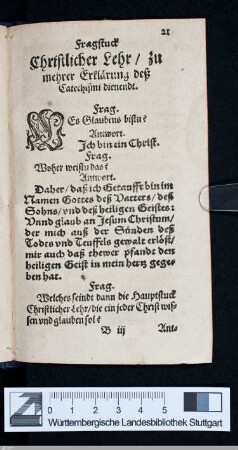 21
Fragstuck
Christlicher Lehr / zu
mehrer Erklärung deß
Catechismi dienendt.
Frag.
WEs Glaubens bistu?
Antwort.
Ich bin ein Christ.
Frag.
Woher weistu das?
Antwort.
Daher / daß ich Getaufft bin im
Namen Gottes deß Vatters / deß
Sohns / vnd deß heiligen Geistes:
Vnnd glaub an Jesum Christum /
der mich auß der Sünden deß
Todts vnd Teuffels gewalt erlöst /
mir auch daß thewer pfandt den
heiligen Geist in mein hertz gege=
ben hat.
Frag.
Welches seindt dann die Hauptstuck
Christlicher Lehr / die ein jeder Christ wis=
sen vnd glauben sol?
B iij Ant=
cm 0 1 2 3 4 5
Württembergische Landesbibliothek Stuttgart